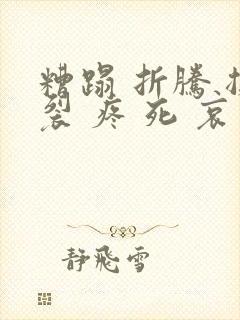 糟蹋 折騰
裂 疼 死 哀
靜飛雪